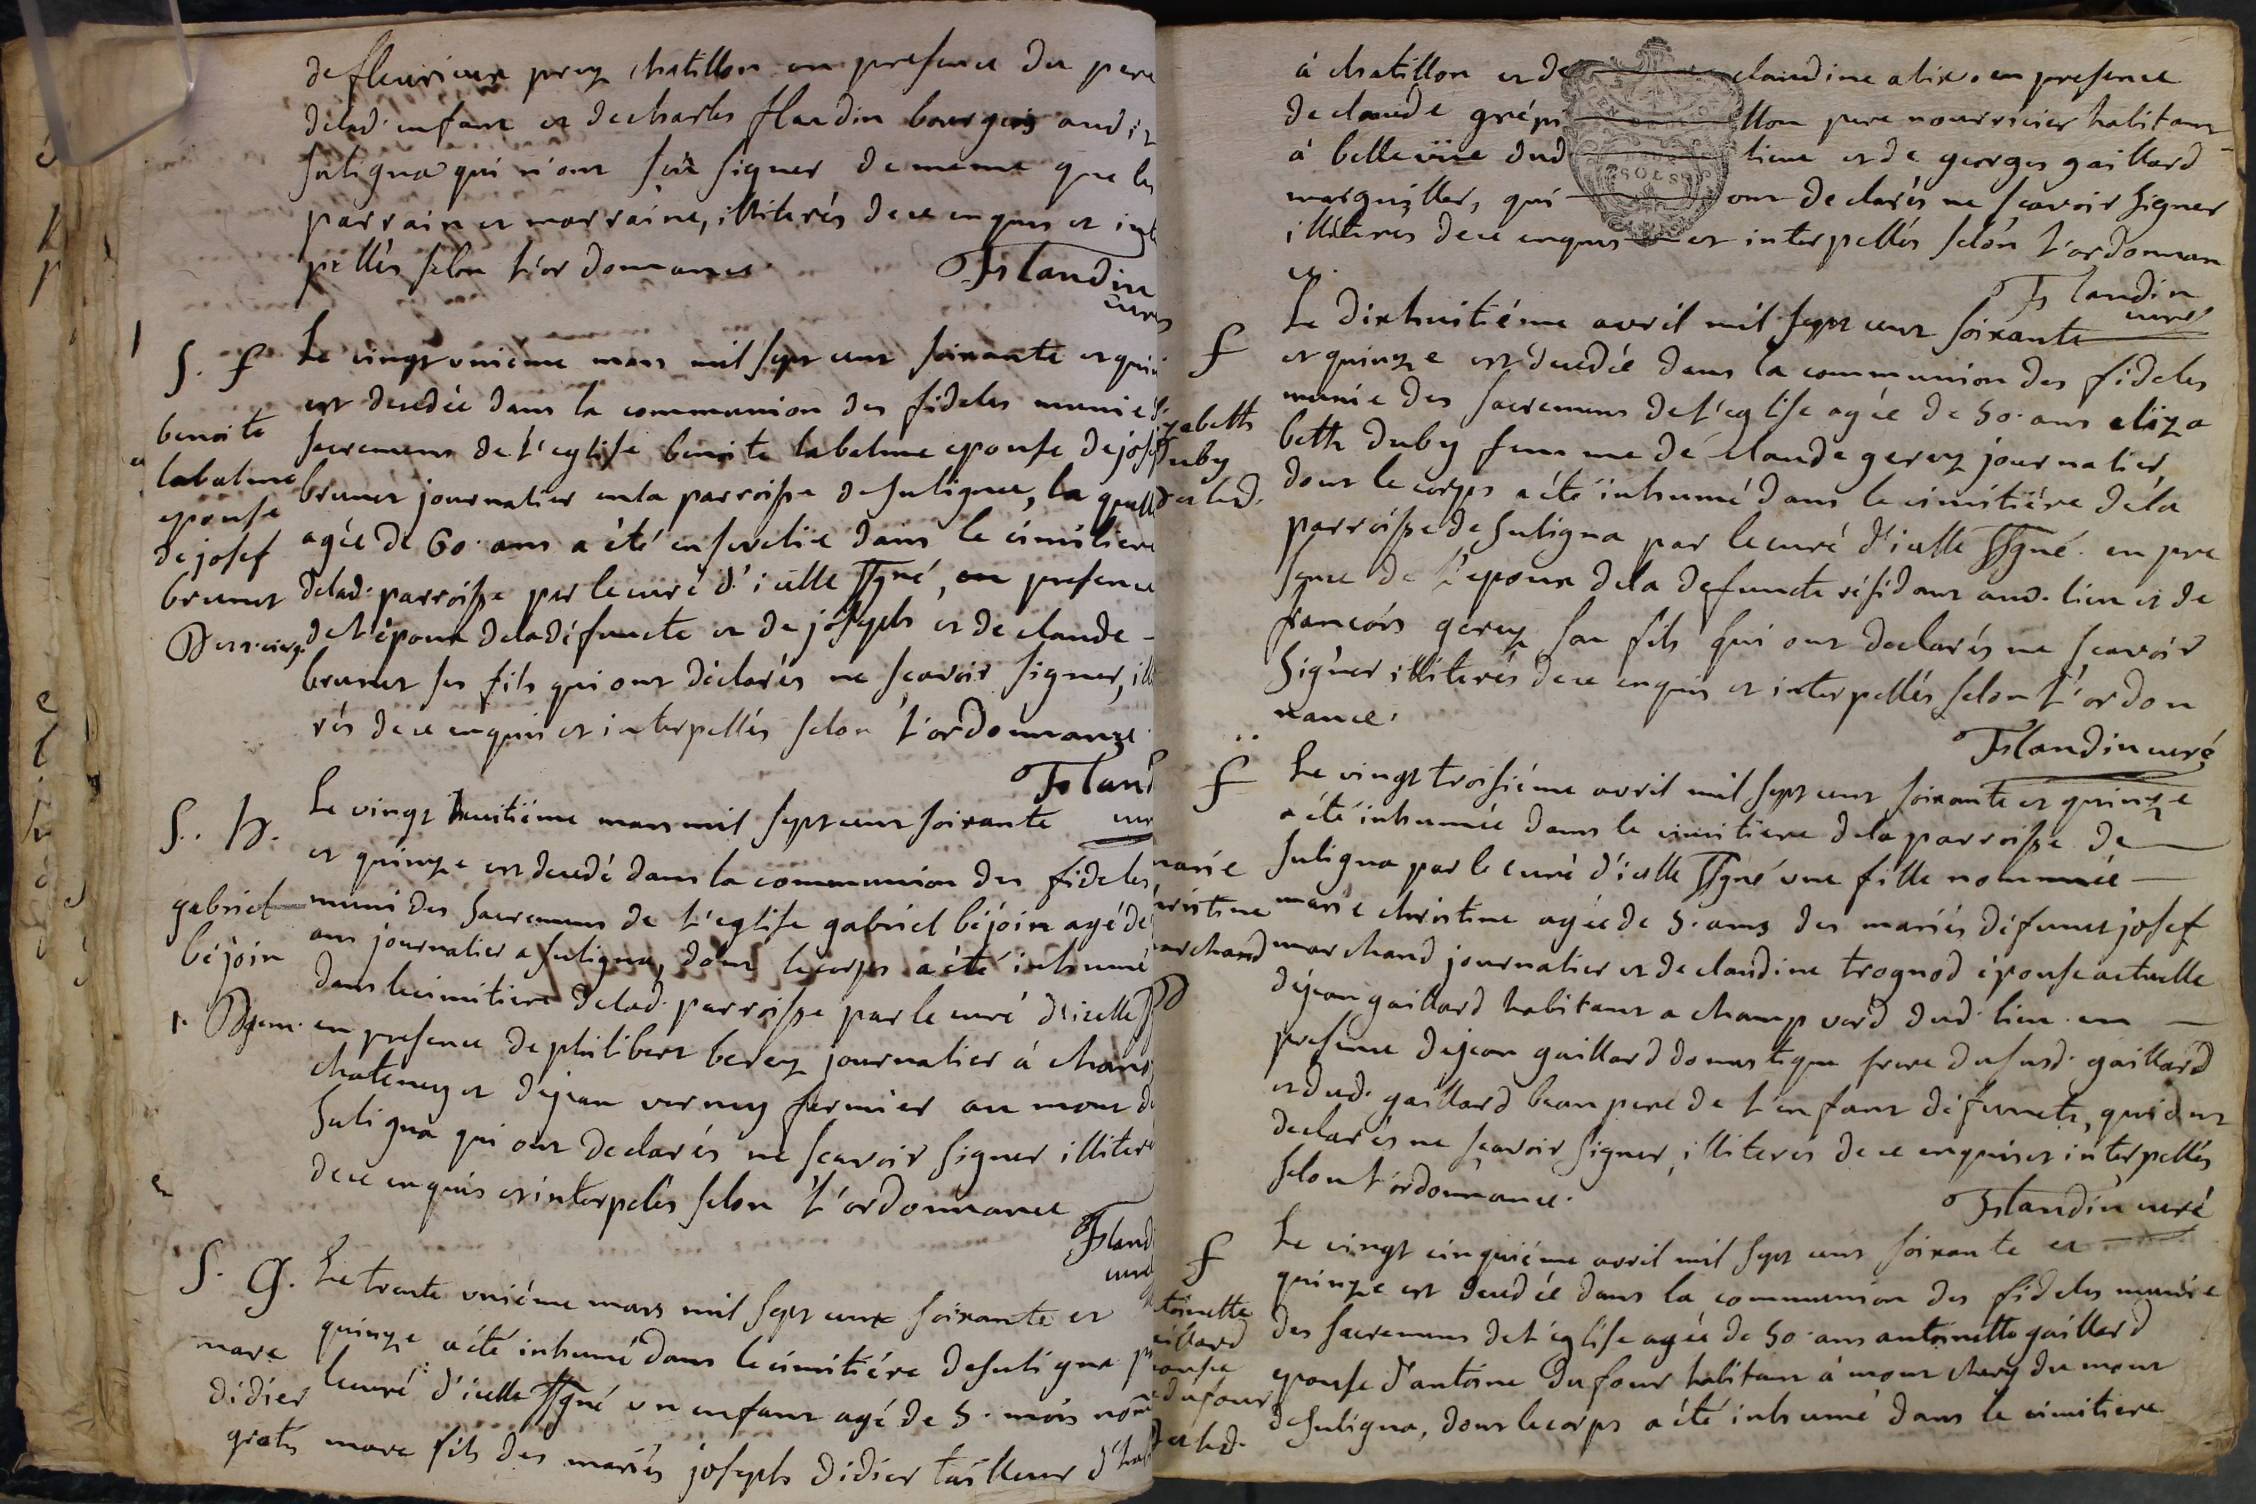 de fleurieux prez chatillon en presence du pere
delad. enfant et de charles flandin bourgeois audit
suligna qui n'ont sçü signer de meme que les
parrain et marraine, illiterés de ce enquis et inte
pellés selon l'ordonnance.
Flandin
curé
S. f
Le vingt unieme mars mil sept cent soixante et quin
est decedée dans la communion des fideles munie d
benoite
sacremens de l'eglise benoite labalme epouse de josep
labalme
brunet journalier en la parroisse de suligna, la quelle
epouse
agée de 60. ans a été ensevelie dans le cimitiere
de josef
delad. parroisse par le curé d'icelle ssgné, en presence
brunet
de l'époux de la défuncte et de joseph et de claude
brunet ses fils qui ont déclarés ne scavoir signer, ill
rés de ce enquis et interpellés selon l'ordonnance.
Fland
cur
S. h.
Le vingt huitiéme mars mil sept cent soixante
et quinze est decedé dans la communion des fideles
gabriel
muni des sacremens de l'eglise gabriel béjoin agé de
béjoin
ans journalier a suligna, dont le corps a été inhumé
dans le cimitiere delad. parroisse par le curé d'icelle
en presence de philibert berez journalier à
chateney et de jean verney fermier au mont d
suligna qui ont declarés ne scavoir signer illiter
de ce enquis et interpelés selon l'ordonnance
Fland
curé
S. G.
Le trente uniéme mars mil sept cent soixante et
quinze a été inhumé dans le cimitiére de suligna p
marc
le curé d'icelle ssgné un enfant agé de 5. mois nom
didier
gratis
marc fils des mariés joseph didier tailleur d'hab
à chatillon et de claudine alix. en presence
de claude llon pere nourricier habitant
à bellevüe dud lieu et de georges gaillard
marguiller, qui ont declarés ne scavoir signer
illiteres de ce enquis et interpellés selon l'ordonnan
ce.
Flandin
curé
f
Le dixhuitiéme avril mil sept cent soixante
et quinze est décedée dans la communion des fideles
munie des sacremens de l'eglise agée de 50. ans eliza
zabeth
beth duby femme de claude gerez journalier
duby
dont le corps a été inhumé dans le cimitiére de la
parroisse de suligna par le curé d'icelle ssgné. en pre
sence de l'epoux de la defuncte résidant aud. lieu et de
francois gerez son fils qui ont declarés ne scavoir
signer illiterés de ce enquis et interpellés selon l'ordon
nance.
Flandin curé
f
Le vingt troisiéme avril mil sept cent soixante et quinze
a été inhumée dans le cimitiere de la parroisse de
suligna par le curé d'icelle ssgné une fille nommée
marie
marie christine agée de 5. ans des mariés défunct josef
ristine
marchand journalier et de claudine trognod épouse actuelle
archand
de jean gaillard habitant a champ verd dud. lieu. en
presence de jean gaillard domestique frere du susd. gaillard
et dud. gaillard beau pere de l'enfant défuncte, qui ont
declarés ne scavoir signer, illiterés de ce enquis et interpellés
selon l'ordonnance.
Flandin curé
f
Le vingt cinquiéme avril mil sept cent soixante et
quinze est decedée dans la communion des fideles munie
toinette
des sacremens de l'eglise agée de 50. ans antoinette gaillard
aillard
epouse d'antoine dufour habitant à mont chary du mont
pouse
dufour
de suligna, dont le corps a été inhumé dans le cimitiere